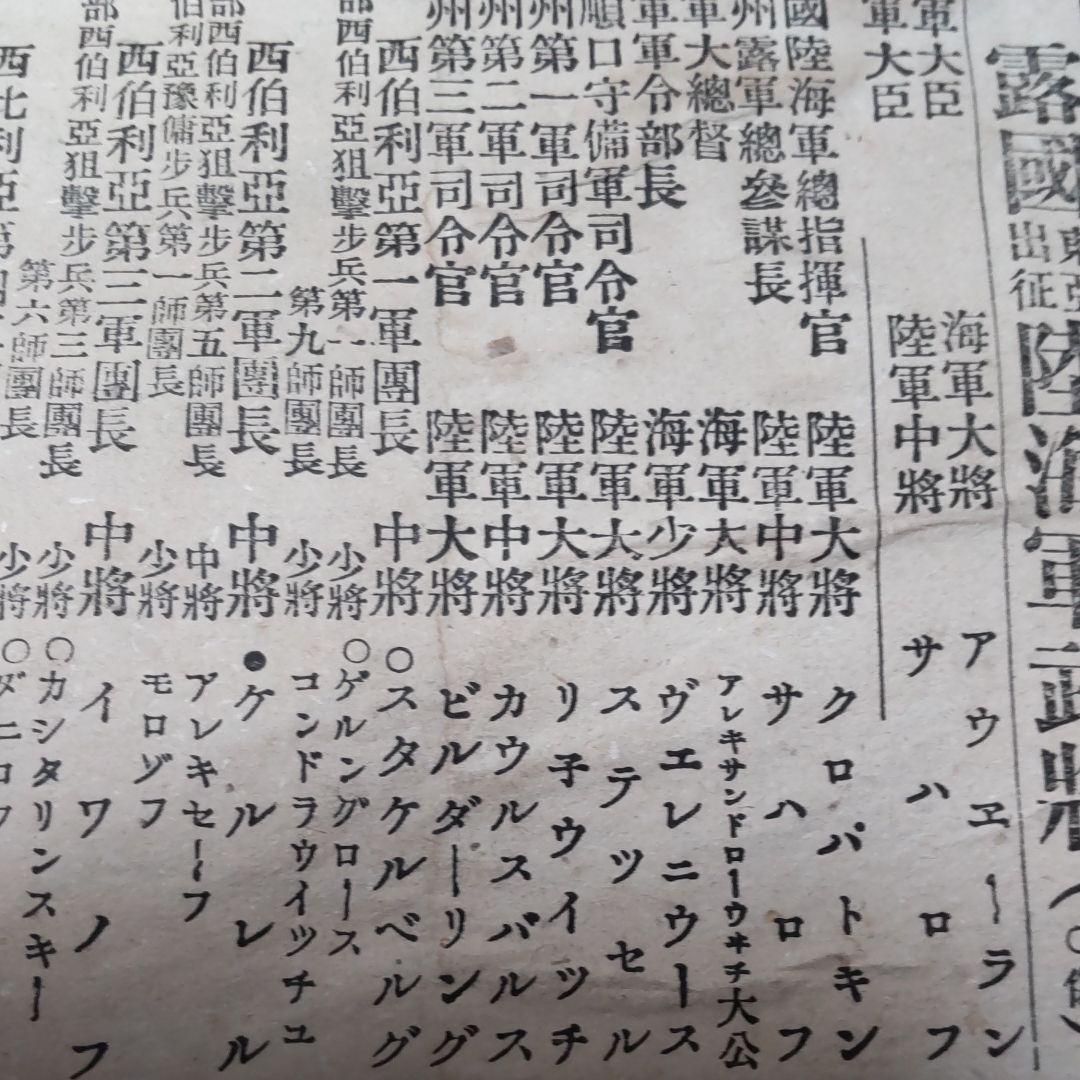 露國東亞出征陸海軍
軍大臣 海軍大將 アウヱーラン
軍大臣 陸軍中將 サハロフ
國陸海軍總指揮官 陸軍大將 クロパトキン
州露軍總參謀長 陸軍中將 サハロフ
軍大總督 海軍大將 アレキサンドローウヰチ大公
軍軍令部長 海軍少將 ヴエレニウース
順口守備軍司令官 陸軍大將 ステツセル
州第一軍司令官 陸軍大將 リ子ウイツチ
州第二軍司令官 陸軍中將 カウルスパルス
州第三軍司令官 陸軍大將 ビルダーリング
西伯利亞第一軍團長 中將 ○スタケルベルグ
部西伯利亞狙擊步兵第一師團長 少將 ○ゲルングロース
第九師團長 少將 コンドラウイツチユ
西伯利亞第二軍團長 中將 ●ケルレル
部西伯利亞狙擊步兵第五師團長 中將 アレキセーフ
伯利亞豫備步兵第一師團長 少將 モロゾフ
西伯利亞第三軍團長 中將 イワノフ
部西伯利亞狙擊步兵第三師團長 少將 ○カシタリンスキー
第六師團長 少將 ○ダニロフ
西比利亞第四